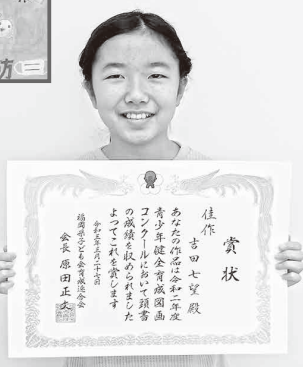 防
賞状
佳作
吉田七望殿
あなたの作品は令和二年度
青少年健全育成図画
コンクールにおいて頭書
の成績を収められました
よってこれを賞します
令和三年二月二十七日
福岡県子ども会育成連合会
会長 原田正文